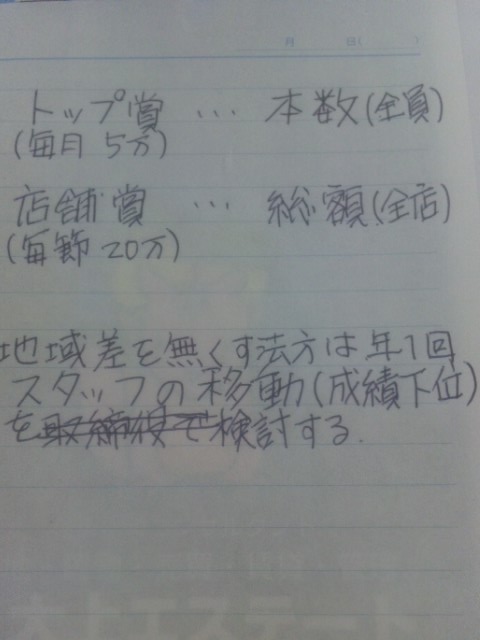 月 日( )
トップ賞 … 本数(全員)
(毎月 5万)
店舗賞 … 総額(全店)
(毎節 20万)
地域差を無くす法方は年1回
スタッフの移動(成績下位)
を取締役で検討する.
エステート